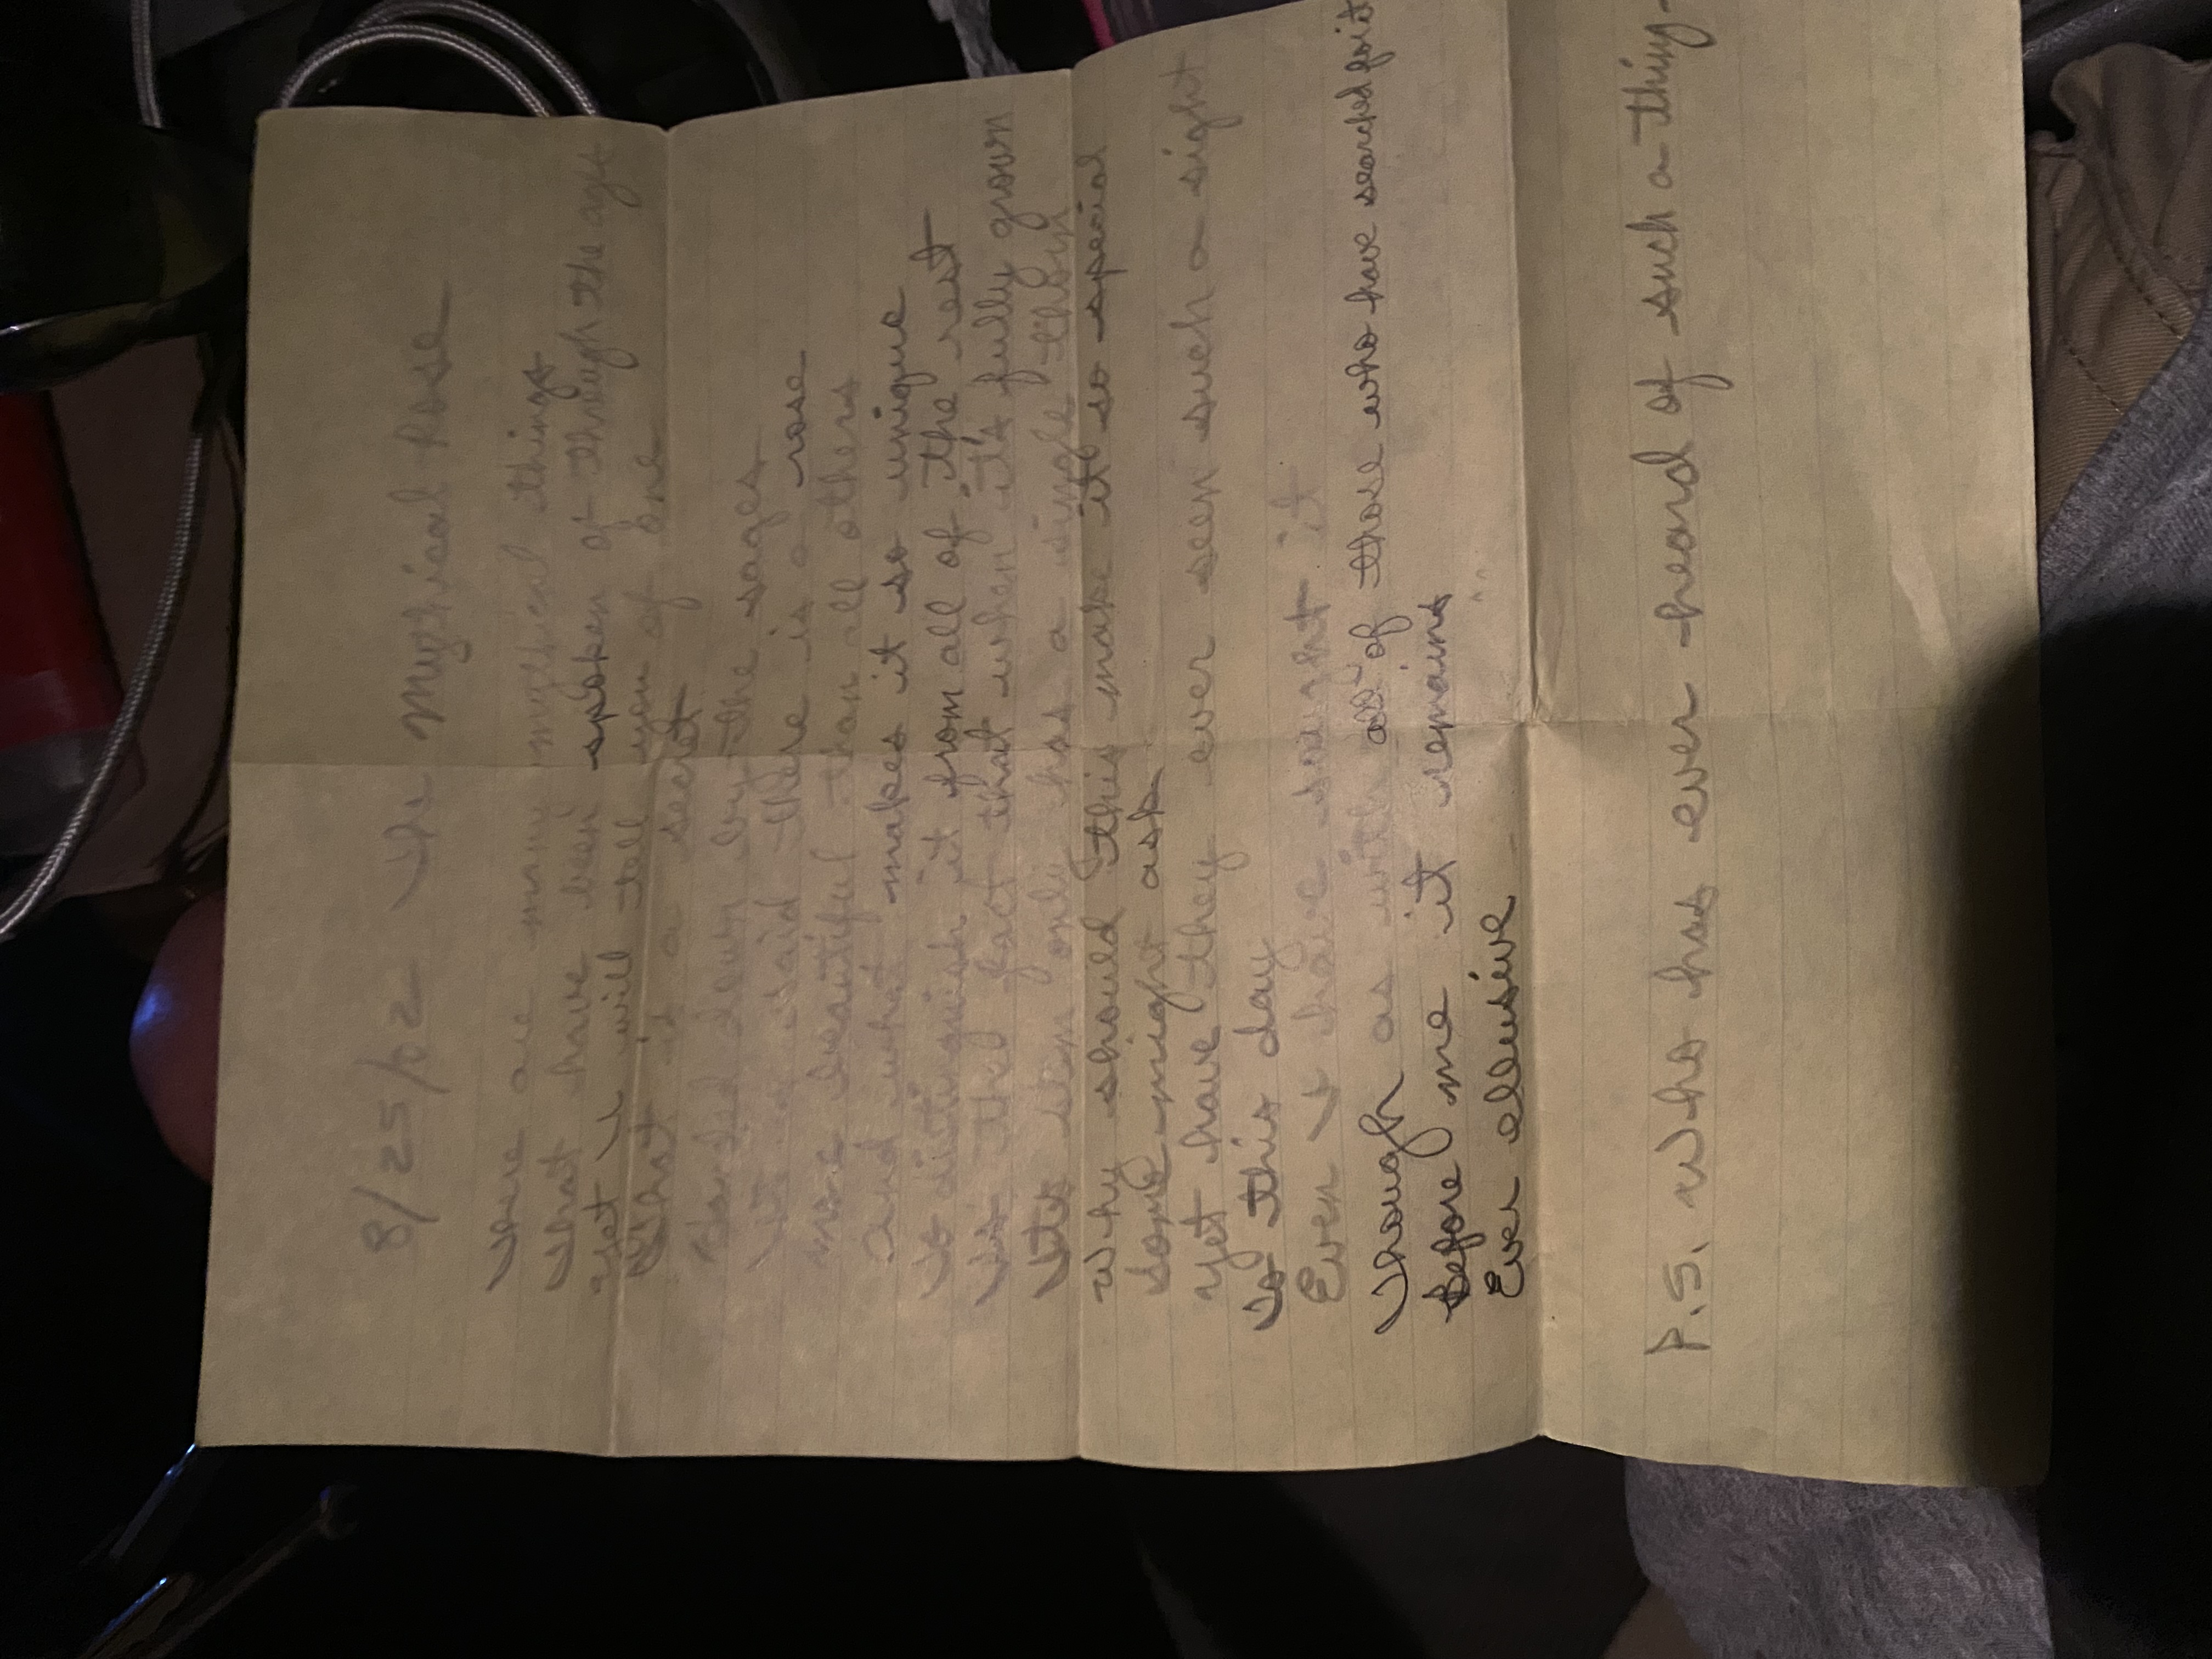 8/25/02 The Mythical Rose
There are many mythical things
That have been spoken of through the ages
Yet I will tell you of one
That is a secret
Handed down by the sages
It is said there is a rose
more beautiful than all others
and what makes it so unique
To distinguish it from all of the rest
Is the fact that when it's fully grown
Its stem only has a single thorn
Why should this make it so special
some might ask
Yet have they ever seen such a sight
To this day
Even I have sought it
Though as with all of those who have searched for it
Before me it remains
Ever elusive
P.S. Who has ever heard of such a thing